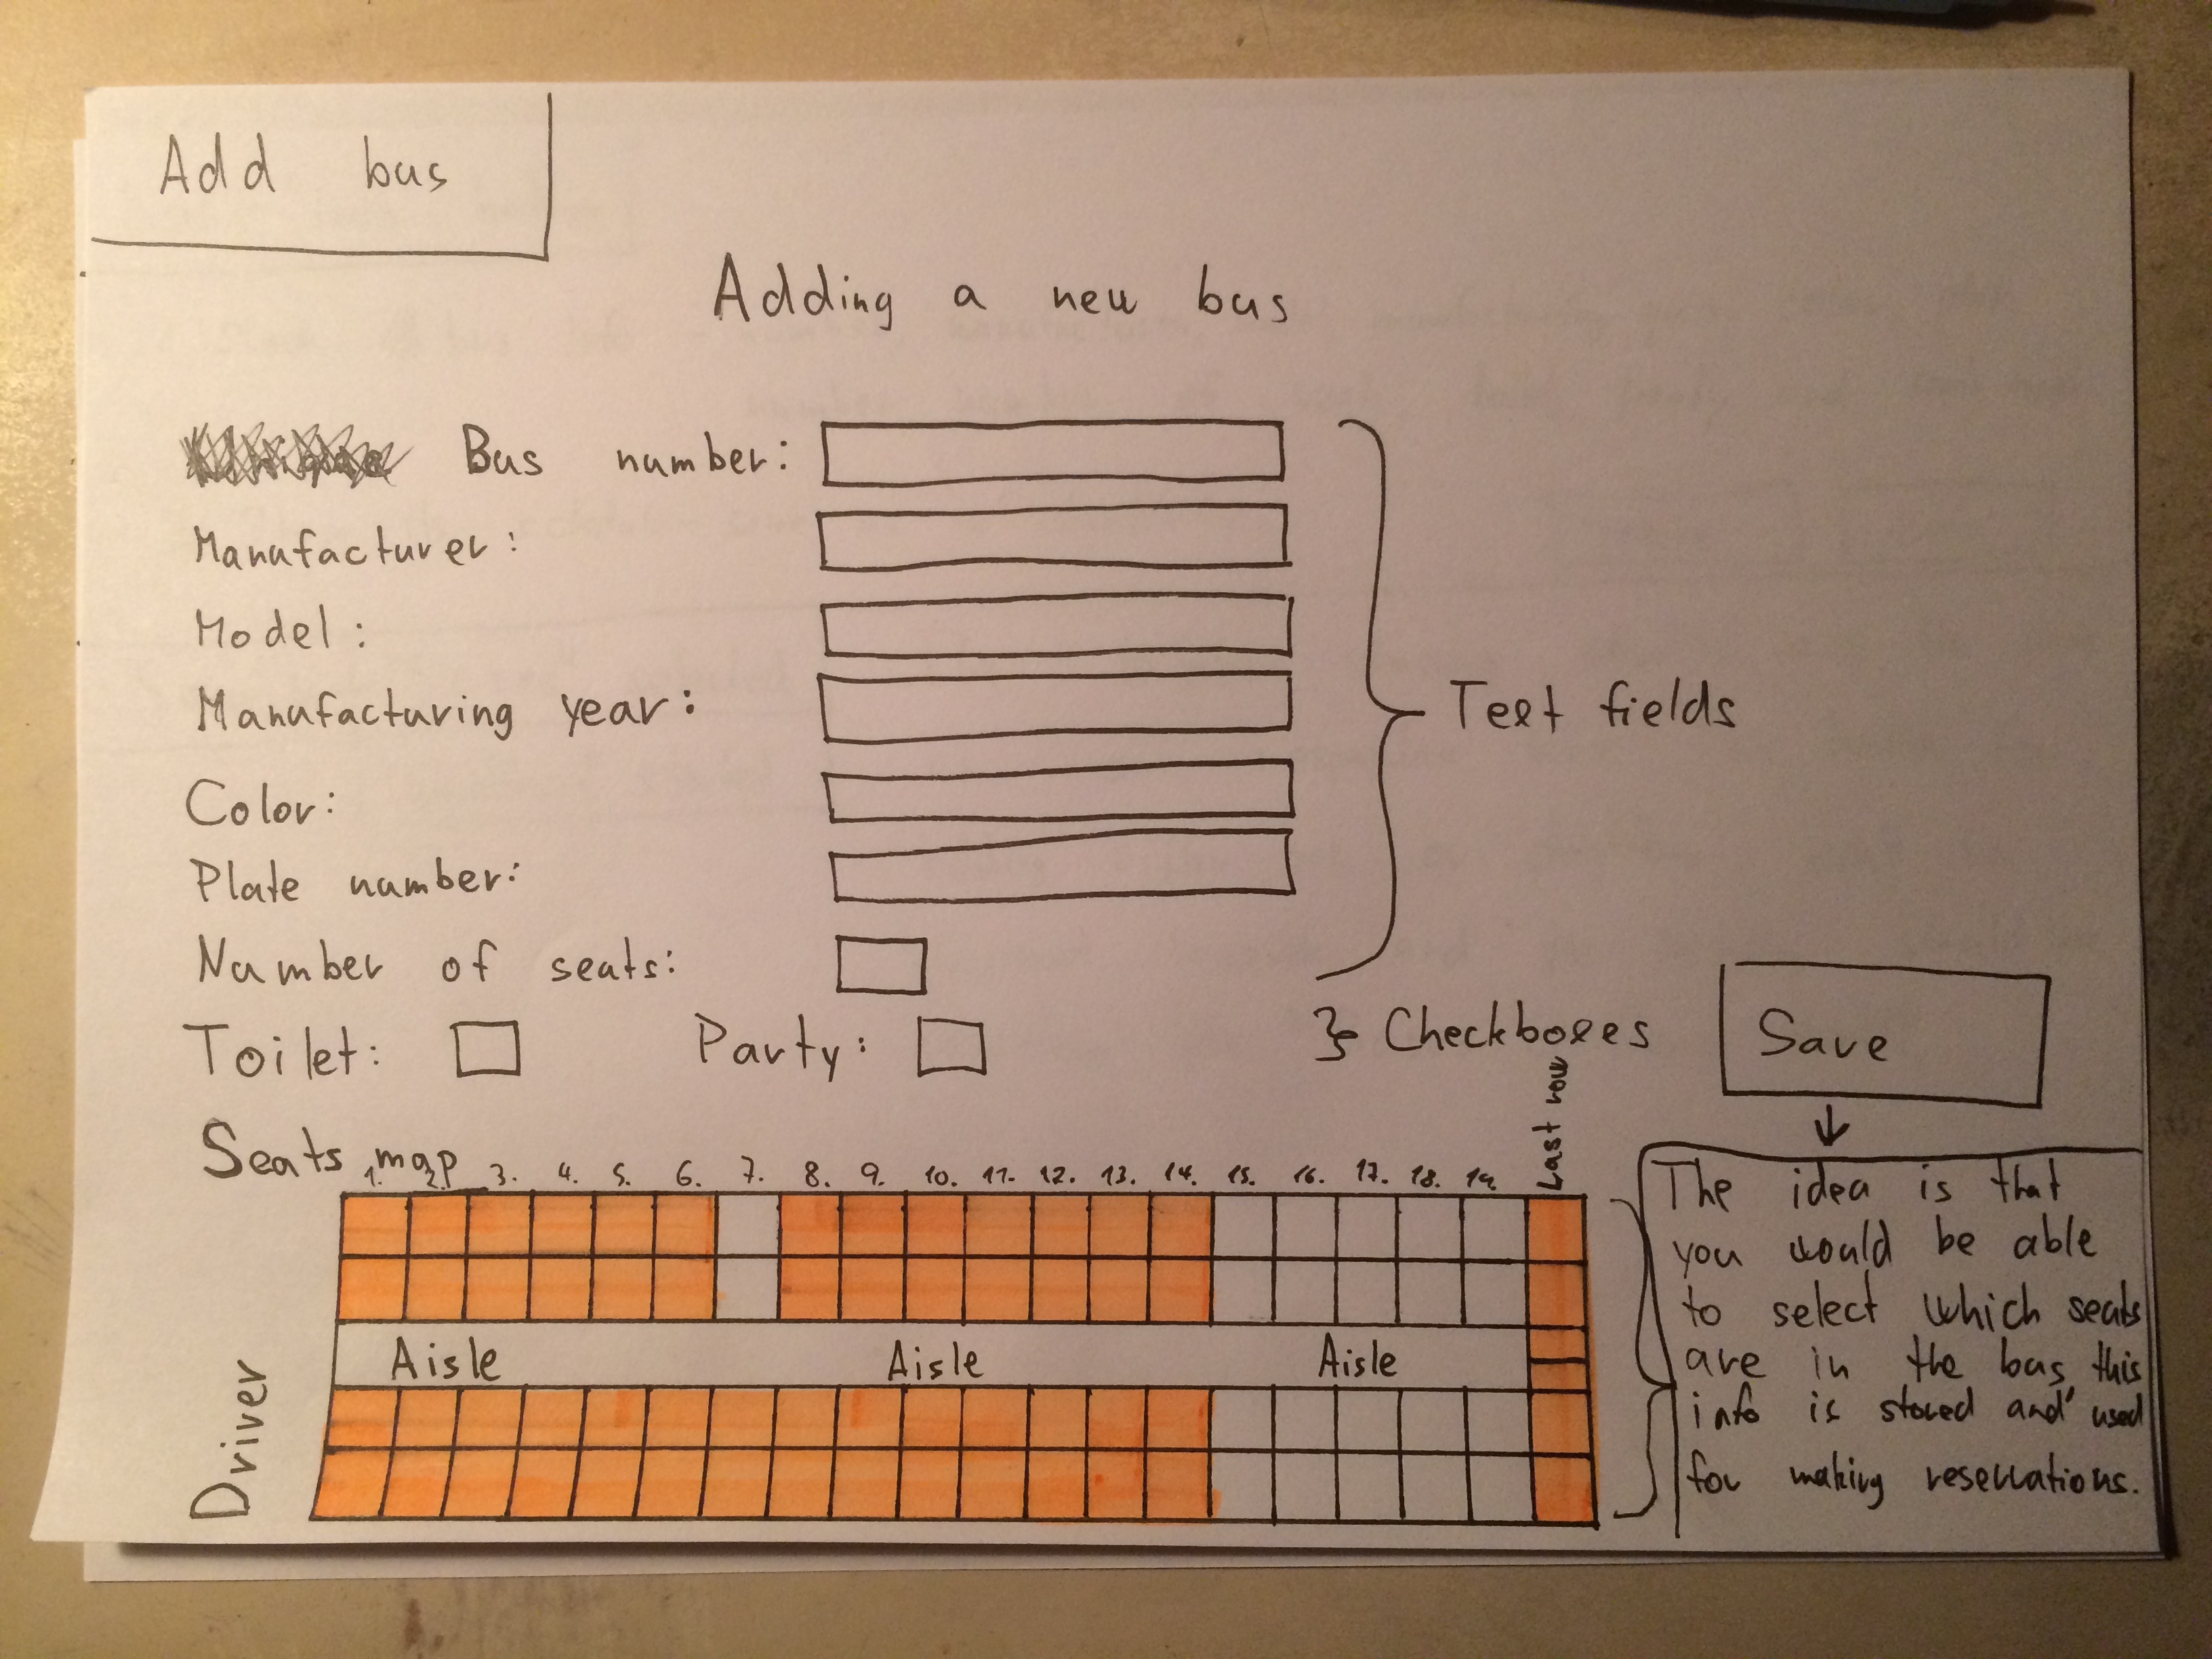 Add bus
Adding a new bus
Bus number:
Manufacturer:
Model:
Manufacturing year:
Text fields
Color:
Plate number:
Number of seats:
Toilet:
Party:
Checkboxes
Save
Seats map
1. 2. 3. 4. 5. 6. 7. 8. 9. 10. 11. 12. 13. 14. 15. 16. 17. 18. 19.
Last row
Aisle Aisle Aisle
Driver
The idea is that
you would be able
to select which seats
are in the bus, this
info is stored and used
for making reservations.